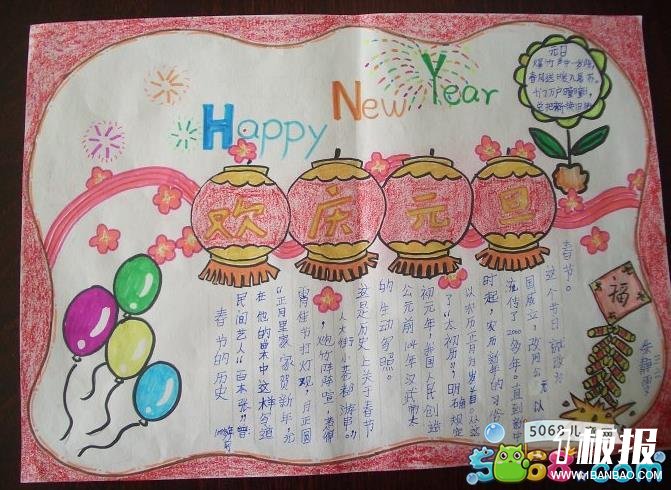 Happy New Year
欢庆元旦
元日
爆竹声中一岁除,
春风送暖入屠苏。
千门万户曈曈日,
总把新换旧符
福
春节的历史
民间艺人"百本张"曾
在他的唱本中这样句道
"正月里家家贺新年,元
宵佳节打灯观,月正圆
,炮竹阵阵宣,惹得
人人大街小巷
这是历史上关于春节
的生动写照。
公元前104年汉武帝太
初元年,我国人民创造
了"太初历",明确规定
以农历正月为岁首。从这
时起,农历新年的习俗
流传了2000多年。直到新中
国成立,改用公元以
这个节日
春节。
5068儿童网
5068.com
板报
WWW.1BANBAO.COM